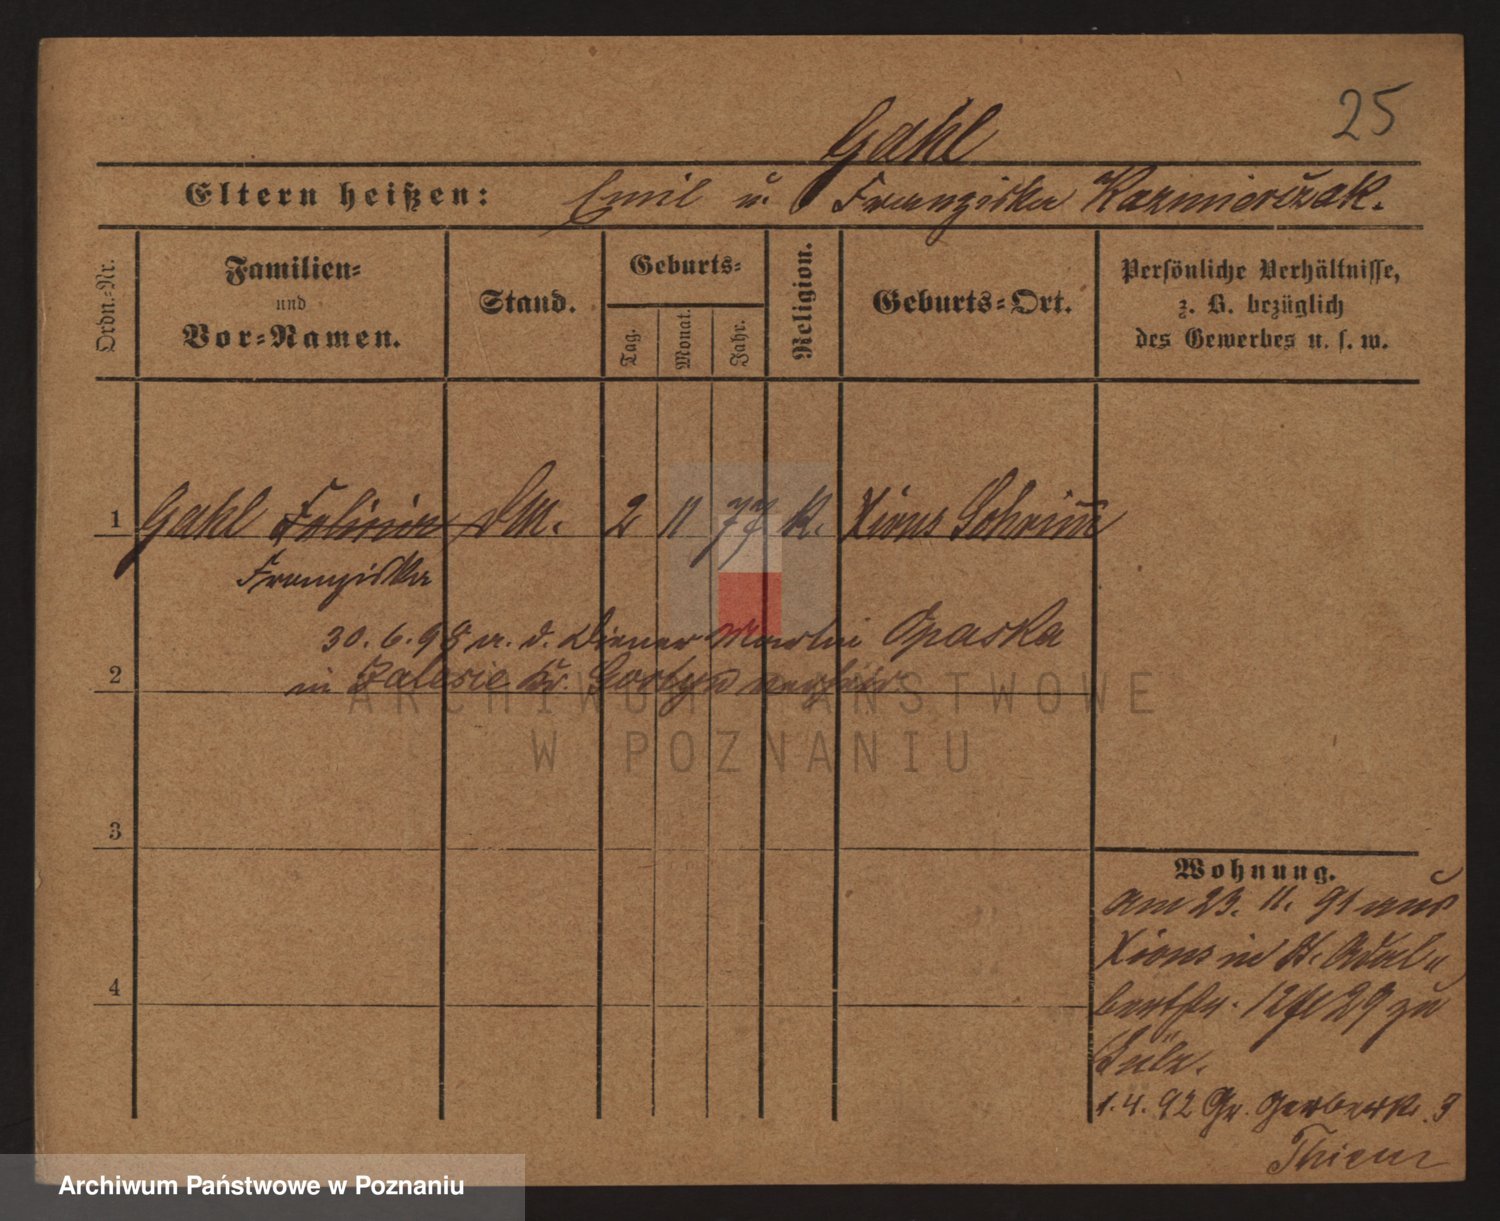 25
Gahl
Eltern heißen: Emil u. Franziska Kazmierczak.
Ordn.-Nr.
Familien-
und
Vor-Namen.
Stand.
Geburts-
Tag.
Monat.
Jahr.
Religion.
Geburts-Ort.
Persönliche Verhältnisse,
z. B. bezüglich
des Gewerbes u. s. w.
1 Gahl DM. 2 11 77 K. Xions Schrimm
Franziska
30. 6. 98 m. d. Diener Martin Opaska
2
in Zalesie Kr. Gostyn verheir
ARCHIWUM PAŃSTWOWE
W POZNANIU
3
4
Wohnung.
am 23. 11. 91 aus
Xions in St. Adal-
bertstr. 29 zu
1. 4. 92 Gr. Gerberstr. 3
Thiem
Archiwum Państwowe w Poznaniu